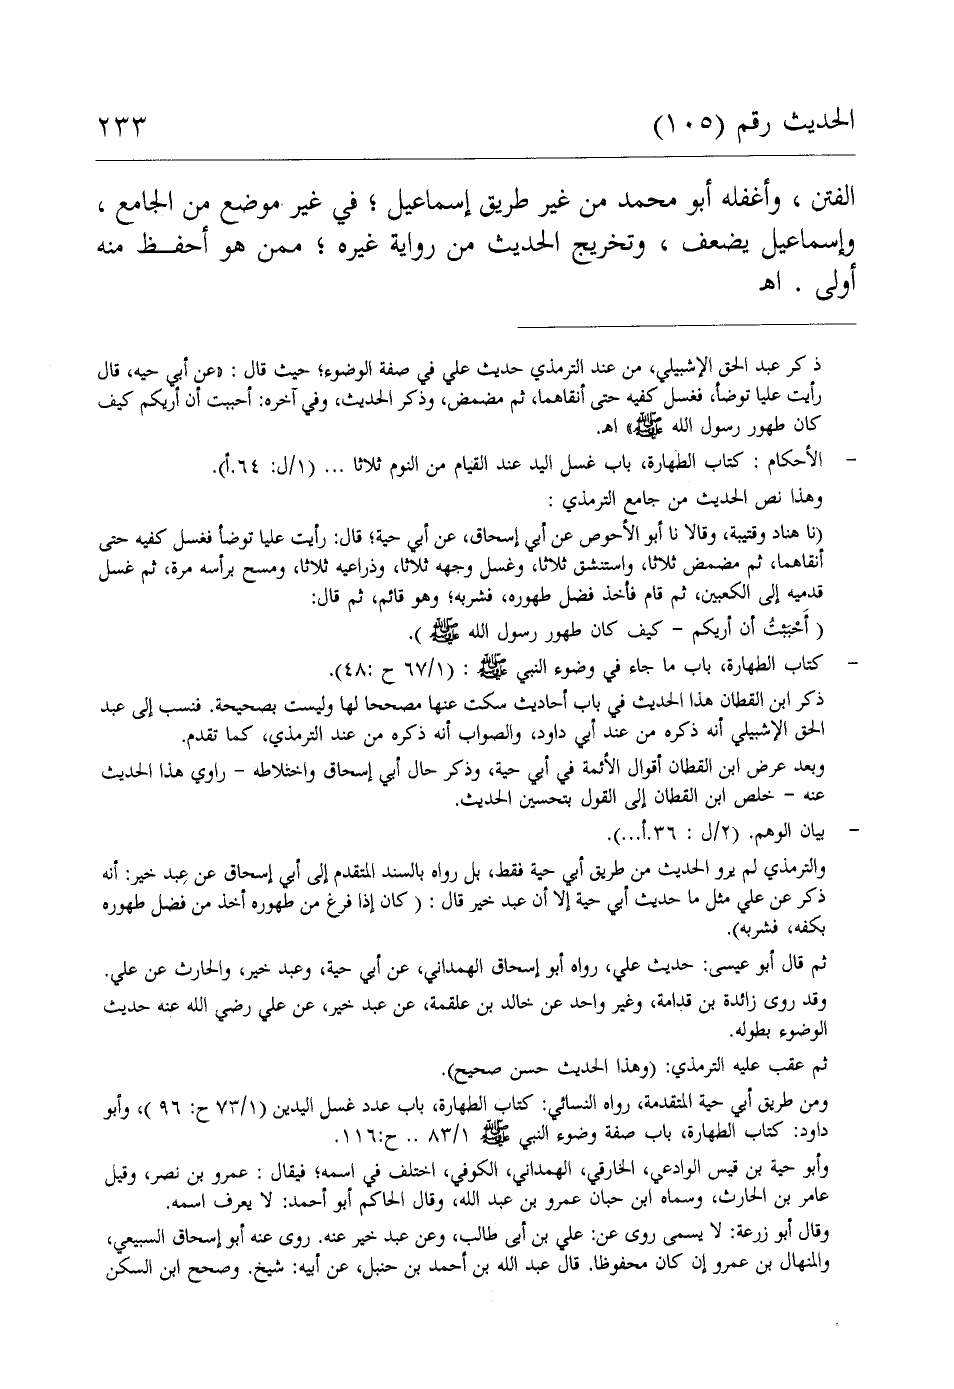 الحديث رقم (١٠٥)
٢٣٣
الفتن ، وأغفله أبو محمد من غير طريق إسماعيل ؛ في غير موضع من الجامع ،
وإسماعيل يضعف ، وتخريج الحديث من رواية غيره ؛ ممن هو أحفظ منه
أولى . اهـ
ذكر عبد الحق الإشبيلي، من عند الترمذي حديث علي في صفة الوضوء؛ حيث قال : «عن أبي حيه، قال
رأيت عليا توضأ، فغسل كفيه حتى أنقاهما، ثم مضمض، وذكر الحديث، وفي آخره: أحببت أن أريكم كيف
كان طهور رسول الله ﷺ» اهـ.
– الأحكام : كتاب الطهارة، باب غسل اليد عند القيام من النوم ثلاثا ... (١/ل: ٦٤.أ).
وهذا نص الحديث من جامع الترمذي :
(نا هناد وقتيبة، وقالا نا أبو الأحوص عن أبي إسحاق، عن أبي حية؛ قال: رأيت عليا توضأ فغسل كفيه حتى
أنقاهما، ثم مضمض ثلاثا، واستنشق ثلاثا، وغسل وجهه ثلاثا، وذراعيه ثلاثا، ومسح برأسه مرة، ثم غسل
قدميه إلى الكعبين، ثم قام فأخذ فضل طهوره، فشربه؛ وهو قائم، ثم قال:
( أَحْبَبْتُ أن أريكم – كيف كان طهور رسول الله ﷺ ).
– كتاب الطهارة، باب ما جاء في وضوء النبي ﷺ : (٦٧/١ ح :٤٨).
ذكر ابن القطان هذا الحديث في باب أحاديث سكت عنها مصححا لها وليست بصحيحة. فنسب إلى عبد
الحق الإشبيلي أنه ذكره من عند أبي داود، والصواب أنه ذكره من عند الترمذي، كما تقدم.
وبعد عرض ابن القطان أقوال الأئمة في أبي حية، وذكر حال أبي إسحاق واختلاطه – راوي هذا الحديث
عنه – خلص ابن القطان إلى القول بتحسين الحديث.
– بيان الوهم. (٢/ل : ٣٦.أ...).
والترمذي لم يرو الحديث من طريق أبي حية فقط، بل رواه بالسند المتقدم إلى أبي إسحاق عن عبد خير: أنه
ذكر عن علي مثل ما حديث أبي حية إلا أن عبد خير قال : ( كان إذا فرغ من طهوره أخذ من فضل طهوره
بكفه، فشربه).
ثم قال أبو عيسى: حديث علي، رواه أبو إسحاق الهمداني، عن أبي حية، وعبد خير، والحارث عن علي.
وقد روى زائدة بن قدامة، وغير واحد عن خالد بن علقمة، عن عبد خير، عن علي رضي الله عنه حديث
الوضوء بطوله.
ثم عقب عليه الترمذي: (وهذا الحديث حسن صحيح).
ومن طريق أبي حية المتقدمة، رواه النسائي: كتاب الطهارة، باب عدد غسل اليدين (٧٣/١ ح: ٩٦ )، وأبو
داود: كتاب الطهارة، باب صفة وضوء النبي ﷺ ٨٣/١ .. ح:١١٦.
وأبو حية بن قيس الوادعي، الخارقي، الهمداني، الكوفي، اختلف في اسمه؛ فيقال : عمرو بن نصر، وقيل
عامر بن الحارث، وسماه ابن حبان عمرو بن عبد الله، وقال الحاكم أبو أحمد: لا يعرف اسمه.
وقال أبو زرعة: لا يسمى روى عن: علي بن أبى طالب، وعن عبد خير عنه. روى عنه أبو إسحاق السبيعي،
والمنهال بن عمرو إن كان محفوظا. قال عبد الله بن أحمد بن حنبل، عن أبيه: شيخ. وصحح ابن السكن